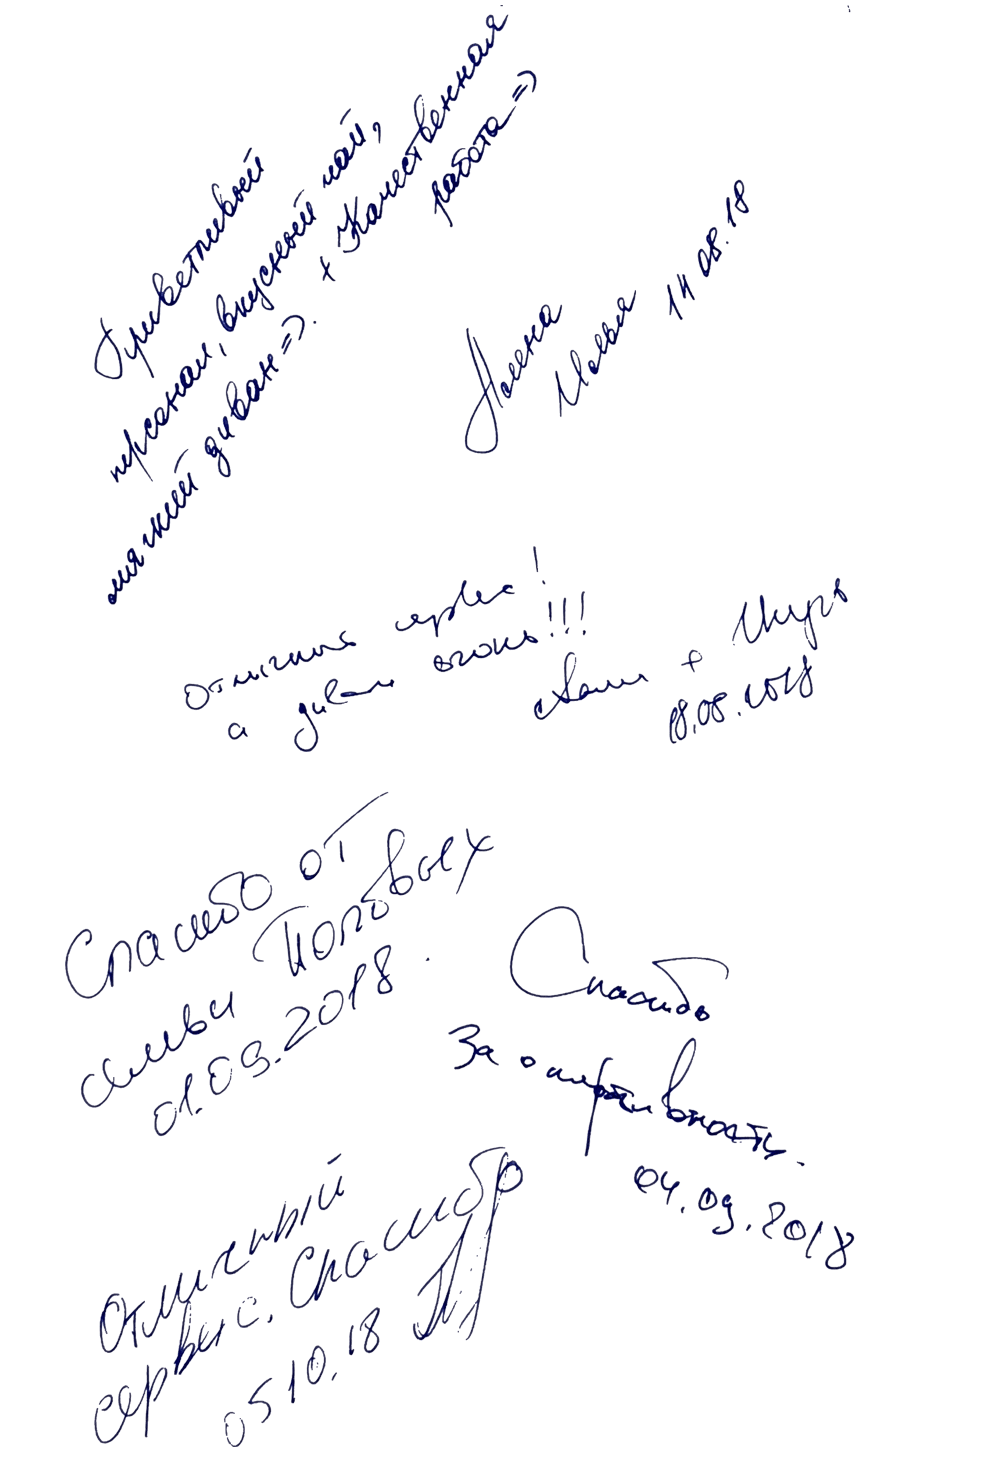 Приветливый
персонал, вкусный чай,
мягкий диван =).
+ Качественная
работа =)
Илья 14.08.18
Отличный сервис!
а диван огонь!!!
18.08.2018
Спасибо от
семьи Поповых
01.09.2018.
Спасибо
За оперативность.
04.09.2018
Отличный
сервис. Спасибо
05 10.18